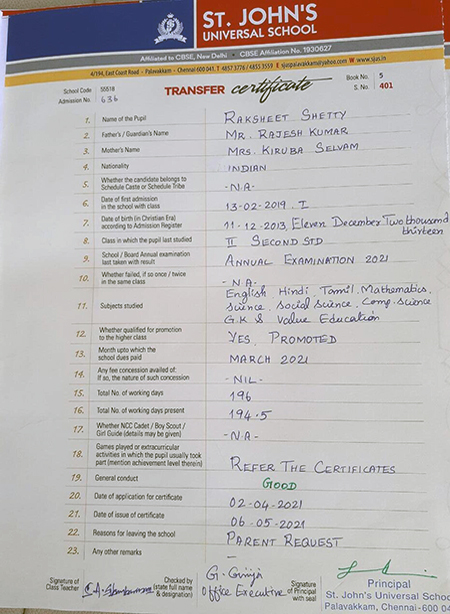 ST. JOHN'S
UNIVERSAL SCHOOL
Affiliated to CBSE, New Delhi • CBSE Affiliation No. 1930627
4/194, East Coast Road - Palavakkam - Chennai-600 041. T 4857 3776 / 4855 3559 E sjuspalavakkam@yahoo.com W www.sjus.in
School Code 55518 TRANSFER certificate Book No. 5
Admission No. 636 S. No. 401
1. Name of the Pupil RAKSHEET SHETTY
2. Father's / Guardian's Name MR. RAJESH KUMAR
3. Mother's Name MRS. KIRUBA SELVAM
4. Nationality INDIAN
5. Whether the candidate belongs to
Schedule Caste or Schedule Tribe -N.A-
6. Date of first admission
in the school with class 13-02-2019. I
7. Date of birth (in Christian Era)
according to Admission Register 11-12-2013, Eleven December Two thousand
thirteen
8. Class in which the pupil last studied II SECOND STD
9. School / Board Annual examination
last taken with result ANNUAL EXAMINATION 2021
10. Whether failed, if so once / twice
in the same class -NA-
11. Subjects studied English, Hindi, Tamil, Mathematics,
Science, Social Science, Comp. science
G.K & Value Education
12. Whether qualified for promotion
to the higher class YES, PROMOTED
13. Month upto which the
school dues paid MARCH 2021
14. Any fee concession availed of:
If so, the nature of such concession -NIL-
15. Total No. of working days 196
16. Total No. of working days present 194.5
17. Whether NCC Cadet / Boy Scout /
Girl Guide (details may be given) -N.A-
18. Games played or extracurricular
activities in which the pupil usually took
part (mention achievement level therein) REFER THE CERTIFICATES
19. General conduct GOOD
20. Date of application for certificate 02-04-2021
21. Date of issue of certificate 06-05-2021
22. Reasons for leaving the school PARENT REQUEST
23. Any other remarks -
Signature of
Class Teacher
Checked by
(state full name
& designation)
G. Girija
Office Executive
Signature
of Principal
with seal
Principal
St. John's Universal School
Palavakkam, Chennai-600 04